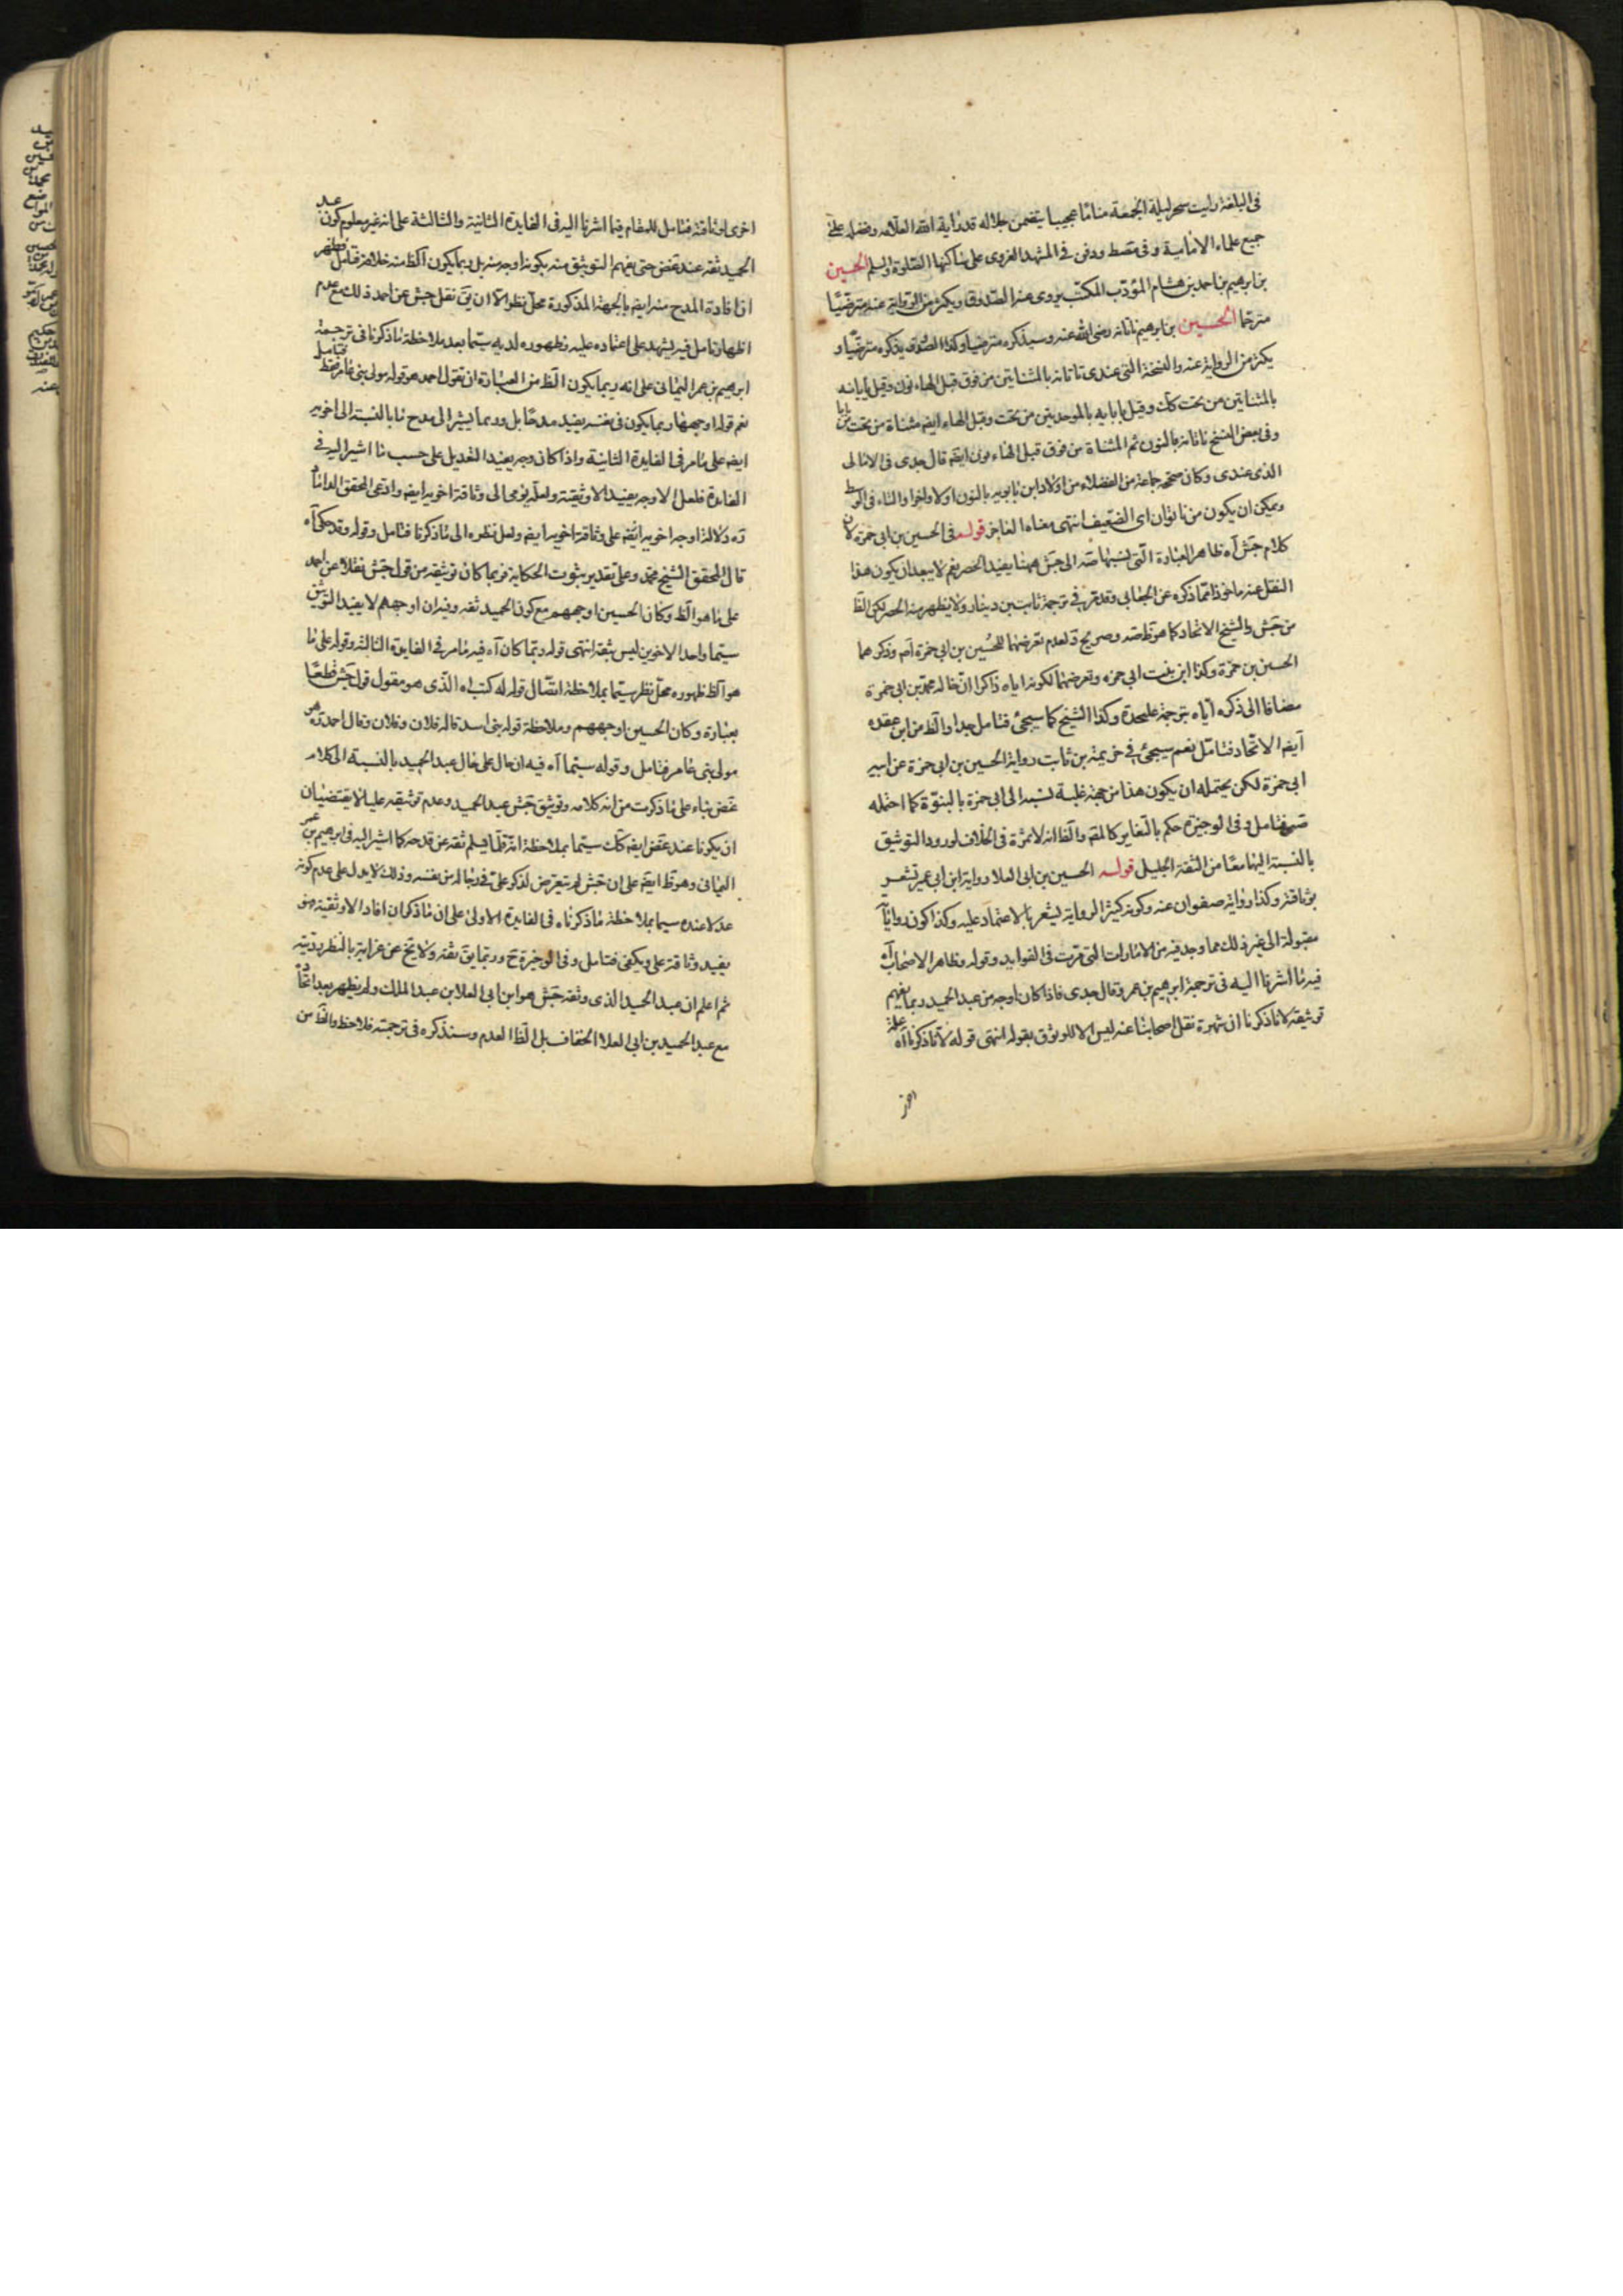 فى البلغة رايت سحر ليلة الجمعة مناما عجيبا يتضمن جلاله قدر اية الله العلامه وفضله على
جميع علماء الامامية وفى مسقط ودفن فى المشهد الغروى على ساكنها الصلوة والسلم الحسين
بن ابرهيم بن احمد بن هشام المؤدّب المكتّب يروى عنه الصدوق ويكثر من الرواية عنه مترضّيا
مترحما الحسين بن ابرهيم ناتانه رضى الله عنه وسيذكره مترضيا وكذا الصّدوق يذكره مترضّيا و
يكثر من الرواية عنه والنسخة التى عندى تاتانه بالمثناتين من فوق قبل الهاء نون وقيل يايانه
بالمثناتين من تحت كك وقيل بابايه بالموحدتين من تحت وقبل الهاء ايضه مثناة من تحت
وفى بعض النسخ ناتانه بالنون ثم المثناة من فوق قبل الهاء نون ايضه قال جدى فى الامالى
الذى عندى وكان صححه جماعة من الفضلاء من اولاد ابن بابويه بالنون اولا واخرا والتاء فى الوسط
ويمكن ان يكون من ناتوان اى الضعيف انتهى معناه العاجز قوله فى الحسين بن ابى حمزة لان
كلام جش آه ظاهر العبارة الّتى نسبها صه الى جش ههنا يفيد الحصر نعم لا يبعد ان يكون هذا
النقل عنه ماخوذا مما ذكره عن الجعابى وقد مر فى ترجمة ثابت بن دينار ولا يظهر منه الحصر لكن الظ
من جش والشيخ الاتحاد كما هو ظ صه وصريح د لعدم تعرضهما للحسين بن ابى حمزة آه وذكرهما
الحسن بن حمزة وكذا ابن بنت ابى حمزه وتعرضهما لكونه اياه ذاكرا ان خاله محمد بن ابى حمزة
مضافا الى ذكره ايّاه بترجمة عليحدة وكذا الشيخ كما سيجئ فتامل جدا والظ من ابن عقده
ايضه الاتحاد فتامّل نعم سيجئ فى خزيمة بن ثابت رواية الحسين بن ابى حمزة عن ابيه
ابى حمزة لكن يحتمله ان يكون هذا من جهة غلبة نسبه الى ابى حمزة بالبنوّة كما احتمله
صه فتامل وفى الوجيزة حكم بالتغاير كالمقه والظ انه لا ثمرة فى الخلاف لورود التوثيق
بالنسبة اليهما معا من الثقة الجليل قوله الحسين بن ابى العلا رواية ابن ابى عمير تشعر
بوثاقته وكذا رواية صفوان عنه وكونه كثير الرواية يشعر بالاعتماد عليه وكذا كون رواياته
مقبولة الى غير ذلك مما وجد فيه من الامارات التى مرّت فى الفوايد وقوله وظاهر الاصحاب آه
فيه ما اشرنا اليه فى ترجمة ابرهيم بن عمر وقال جدى فاذا كان اوجه من عبد الحميد ربما يفهم
توثيقه لما ذكرنا ان شهرة نقل اصحابنا عنه ليس الا للوثوق بقوله انتهى قوله لما ذكرناه
اخرى
اخرى لوثاقته فتامل للمقام فيما اشرنا اليه فى الفايدة الثانية والثالثة على انه غير معلوم كون عبد
الحميد ثقه عند غض حتى يفهم التوثيق منه بكونه اوجه منه بل ربما يكون الظ منه خلافه فتامل
افادة المدح منه ايضه بالجهة المذكورة محل نظر الا ان يق نقل جش عن احمد ذلك مع عدم
اظهار تامل فيه يشهد على اعتماده عليه وظهوره لديه سيّما بعد ملاحظة ما ذكرنا فى ترجمة
ابرهيم بن عمر اليمانى على انه ربما يكون الظ من العبارة ان نقول احمد هو قوله مولى بنى عامر فقط فتامل
نعم قوله اوجههما ربما يكون فى نفسه يفيد مدحا بل وربما يشير الى مدح ما بالنسبة الى اخويه
ايضه على ما مر فى الفايدة الثانية واذا كان وجه يفيد التعديل على حسب ما اشير اليه فى
الفايدة فلعل الاوجه يفيد الاوثقية ولعله يؤمى الى وثاقة اخويه ايضه وادعى المحقق الداماد
ره دلالة اوجه اخويه ايضه على وثاقة اخويه ايضه ولعل نظره الى ما ذكرنا فتامل وقوله وقد حكى آه
قال المحقق الشيخ محمد وعلى تقدير ثبوت الحكاية فربما كان توثيقه من قول جش نقلا عن احمد
على ما هو الظ وكان الحسين اوجههم مع كون الحميد ثقه وفيه ان اوجههم لا يفيد التوثيق
سيّما واحد الاخوين ليس بثقة انتهى قوله ربّما كان آه فيه ما مر فى الفايدة الثالثة وقوله على ما
هو الظ ظهوره محل نظر سيّما بملاحظة اتّصال قوله له كتب اه الّذى هو مقول قول جش قطعا
بعبارة وكان الحسين اوجههم وملاحظة قوله بنى اسد قاله فلان وفلان وقال احمد ره هو
مولى بنى عامر فتامل وقوله سيّما آه فيه ان حال على حال عبد الحميد بالنسبة الى كلام
غض بناء على ما ذكرت من انه كلامه وتوثيق جش عبد الحميد وعدم توثيقه عليا لا يقتضيان
ان يكونا عند غض ايضه كك سيّما بملاحظة انّه قلّما يسلم ثقه عن قدحه كما اشير اليه فى ابرهيم بن عمر
اليمانى وهو ظ ايضه على ان جش لم يتعرض لذكر علىّ فى رجاله من نفسه وذلك لا يدل على عدم كونه
عدلا عنده سيما بملاحظة ما ذكرناه فى الفايدة الاولى على ان ما ذكر ان افاد الاوثقية فهو
يفيد وثاقة على ويكفى فتامل وفى الوجيزة ح وربّما يق ثقه ولا يخ عن غرابة بالنظر
ثم اعلم ان عبد الحميد الذى وثقه جش هو ابن ابى العلا بن عبد الملك ولم يظهر بعد اتحاده
مع عبد الحميد بن ابى العلا الخفاف بل الظ العدم وسنذكره فى ترجمته فلاحظ والظ من